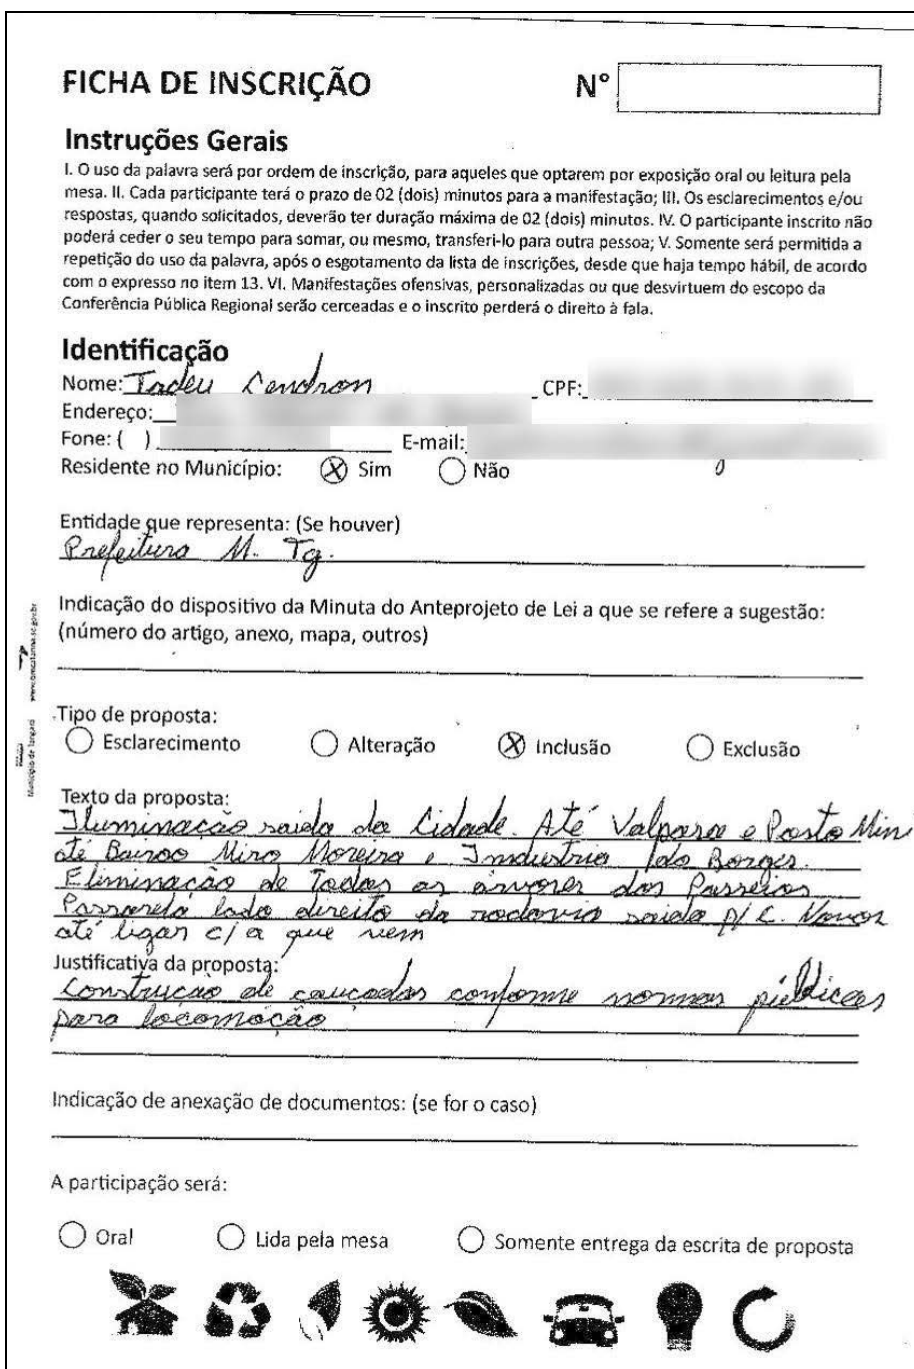 FICHA DE INSCRIÇÃO
N°
Instruções Gerais
I. O uso da palavra será por ordem de inscrição, para aqueles que optarem por exposição oral ou leitura pela
mesa. II. Cada participante terá o prazo de 02 (dois) minutos para a manifestação; III. Os esclarecimentos e/ou
respostas, quando solicitados, deverão ter duração máxima de 02 (dois) minutos. IV. O participante inscrito não
poderá ceder o seu tempo para somar, ou mesmo, transferi-lo para outra pessoa; V. Somente será permitida a
repetição do uso da palavra, após o esgotamento da lista de inscrições, desde que haja tempo hábil, de acordo
com o expresso no item 13. VI. Manifestações ofensivas, personalizadas ou que desvirtuem do escopo da
Conferência Pública Regional serão cerceadas e o inscrito perderá o direito à fala.
Identificação
Nome: Tadeu Cendron CPF:
Endereço:
Fone: ( ) E-mail:
Residente no Município: Sim Não
Entidade que representa: (Se houver)
Prefeitura M. Tg.
Indicação do dispositivo da Minuta do Anteprojeto de Lei a que se refere a sugestão:
(número do artigo, anexo, mapa, outros)
Tipo de proposta:
Esclarecimento Alteração Inclusão Exclusão
Texto da proposta:
Iluminacão saida da Cidade. Até Valpara e Posto Mini
até Bairoo Miro Moreira e Industria Ido Borges.
Eliminação de Todas as árvores dos Passeios
Passarela lado direito da rodovia saida p/ C. Novos
até ligar c/ a que vem
Justificativa da proposta:
Construcão de caucadas conforme normas públicas
para locomoção
Indicação de anexação de documentos: (se for o caso)
A participação será:
Oral Lida pela mesa Somente entrega da escrita de proposta
Município de Tangará